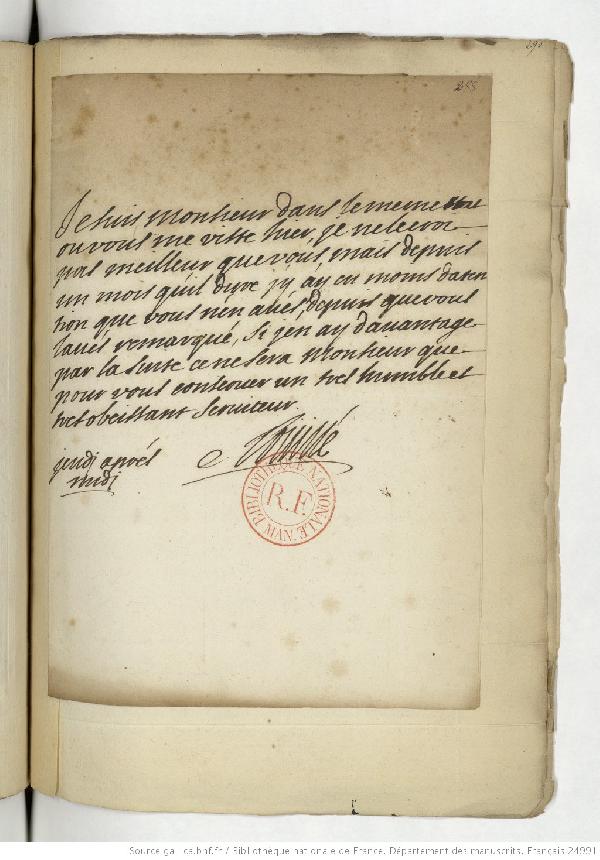 290
255
Je suis Monsieur dans le meme
ou vous me viste hier, je ne le croi
pas meilleur que vous, mais depuis
un mois quil dure jy ay eu moins daten
tion que vous nen aués, depuis que vous
laués remarqué, si jen ay dauantage
par la suitte ce ne sera Monsieur que
pour vous conseruer un tres humble et
tres obeissant seruiteur.
jeudi aprés
midj
BIBLIOTHEQUE NATIONALE MAN
R.F.
Source gallica.bnf.fr / Bibliothèque nationale de France. Département des manuscrits. Français 24991